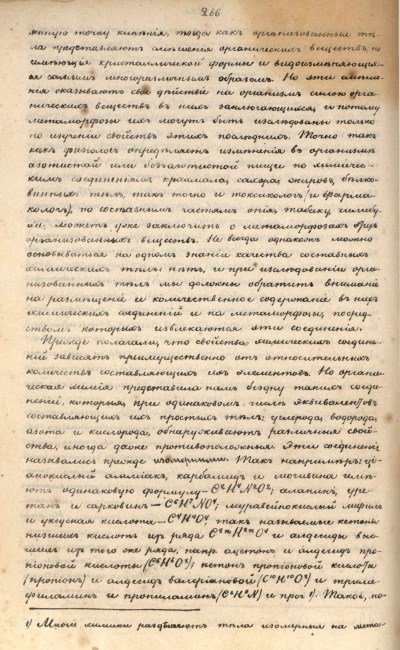 266
ленную точку кипѣнія, тогда какъ организованныя тѣ-
ла представляютъ смѣшенія органическихъ веществъ, не
имѣющія кристаллической формы и видоизмѣняющія-
ся самымъ многоразличнымъ образомъ. Но эти смѣше-
нія оказываютъ свое дѣйствіе на организмъ силою орга-
ническихъ веществъ въ нихъ заключающихся, и потому
метаморфозы ихъ могутъ быть изслѣдованы только
по изученіи свойствъ этихъ послѣднихъ. Точно такъ
какъ физіологъ опредѣляетъ измѣненія въ организмѣ
азотистой или безъазотистой пищи по химичес-
кимъ соединеніямъ крахмала, сахара, жировъ, бѣлко-
винныхъ тѣлъ, такъ точно и токсикологъ (и фарма-
кологъ), по составнымъ частямъ опія, табаку,
можетъ уже заключить о метаморфозахъ
организованныхъ веществъ. Не всегда однакожъ можно
основываться на одномъ знаніи качества составныхъ
химическихъ тѣлъ: нѣтъ, и при изслѣдованіи орга-
низованныхъ тѣлъ мы должны обратить вниманіе
на размѣщеніе и количественное содержаніе въ нихъ
химическихъ соединеній и на метаморфозы, посред-
ствомъ которыхъ извлекаются эти соединенія.
Прежде полагали, что свойства химическихъ соедине-
ній зависятъ преимущественно отъ относительныхъ
количествъ составляющихъ ихъ элементовъ. Но органи-
ческая химія представила намъ бездну такихъ соеди-
неній, которыя при одинаковомъ числѣ эквивалентовъ
составляющихъ ихъ простыхъ тѣлъ: углерода, водорода,
азота и кислорода, обнаруживаютъ различныя свой-
ства, иногда даже противоположныя. Эти соединенія
назывались прежде изомерными. Такъ напримѣръ: ці-
анокислый амміакъ, карбамидъ и мочевина имѣ-
ютъ одинаковую формулу — C²H⁴N²O²; аланинъ, уре-
танъ и саркозинъ — C⁶H⁷NO⁴; муравейнокислый мефилъ
и уксусная кислота — C⁴H⁴O⁴; такъ называемые кетоны
низшихъ кислотъ изъ ряда и алдегиды вы-
шихъ изъ того же ряда, напр. ацетонъ и алдегидъ про-
піоновой кислоты (C⁶H⁶O²); кетонъ пропіоновой кислоты
(пропіонъ) и алдегидъ валеріановой (C¹⁰H¹⁰O²) и триме-
филаминъ и пропиламинъ (C⁶H⁹N) и проч ¹). Такое, по-
¹) Многіе химики раздѣляютъ тѣла изомерныя на мета-